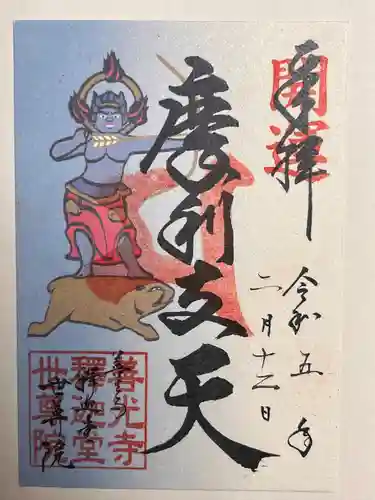 奉拝
開運
令和五年
二月十二日
摩利支天
善光寺
釋迦堂
世尊院
善光寺
釋迦堂
世尊院